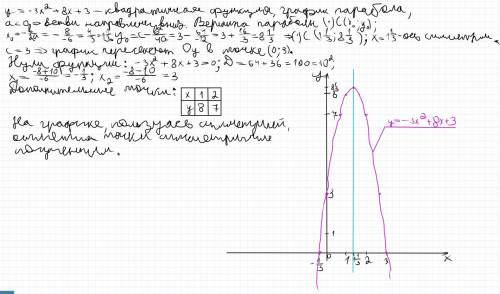 y = -3x² + 8x + 3 - квадратичная функция, график парабола,
a < 0 ветви направлены вниз. Вершина параболы (·)C(x₀; y₀);
x₀ = -b/2a = -8/-6 = 4/3 = 1 1/3; y₀ = c - b²/4a = 3 - 64/-12 = 3 + 16/3 = 8 1/3 ⇒ (·)C(1 1/3; 8 1/3); x = 1 1/3 - ось симметрии.
c = 3 ⇒ график пересекает Oy в точке (0; 3).
Нули функции: -3x² + 8x + 3 = 0; D = 64 + 36 = 100 = 10²;
x₁ = -8+10/-6 = -1/3; x₂ = -8-10/-6 = 3
Дополнительные точки:
x 1 2
y 8 7
На графике, пользуясь симметрией,
отметила точки симметричные
полученным.
y
8 1/3
8
7
y = -3x² + 8x + 3
3
1
-1/3 1 1 1/3 2 3 x